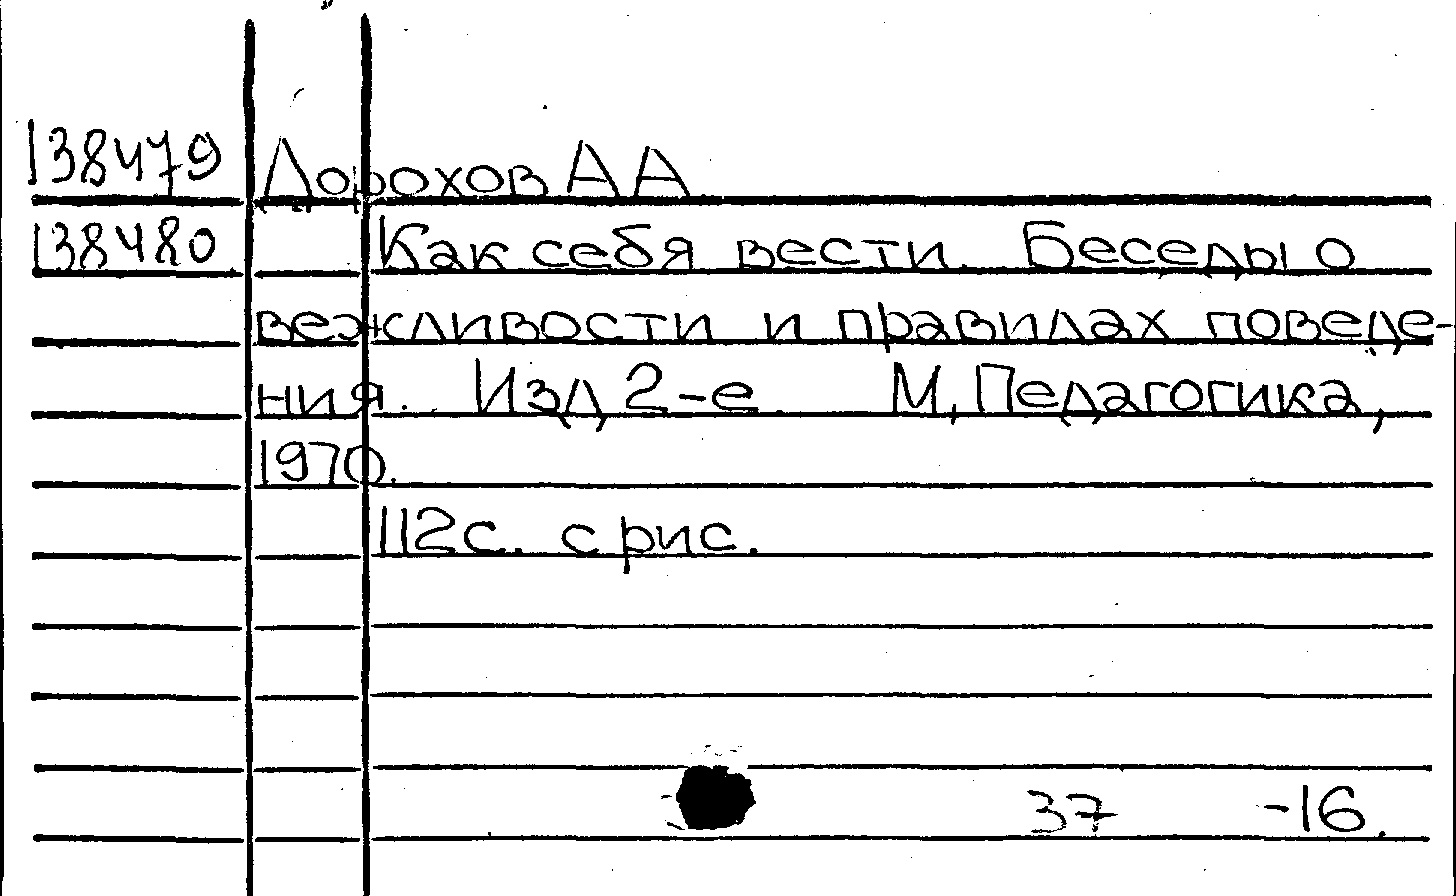 138479 Дорохов А А
138480 Как себя вести. Беседы о
вежливости и правилах поведе-
ния. Изд 2-е М, Педагогика,
1970.
112с. с рис.
37 -16.